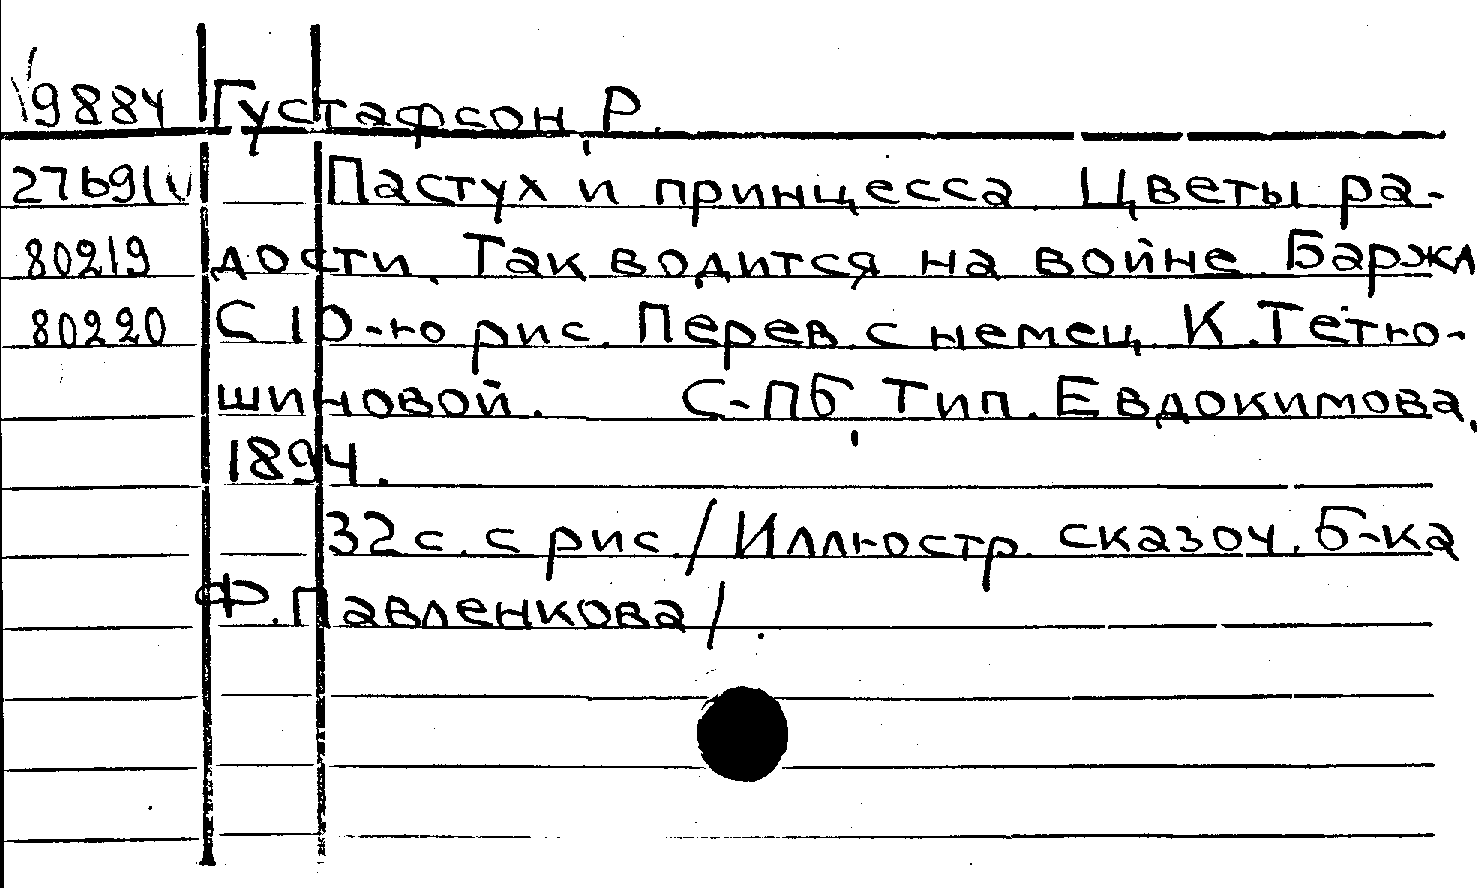 19884 Густафсон, Р.
27691 Пастух и принцесса. Цветы ра-
80219 дости. Так водится на войне. Баржа
80220 С 10-ю рис. Перев. с немец. К. Тетю-
шиновой. С-ПБ, Тип. Евдокимова.
1894.
32 с. с рис. /Иллюстр. сказоч. Б-ка
Ф. Павленкова/.